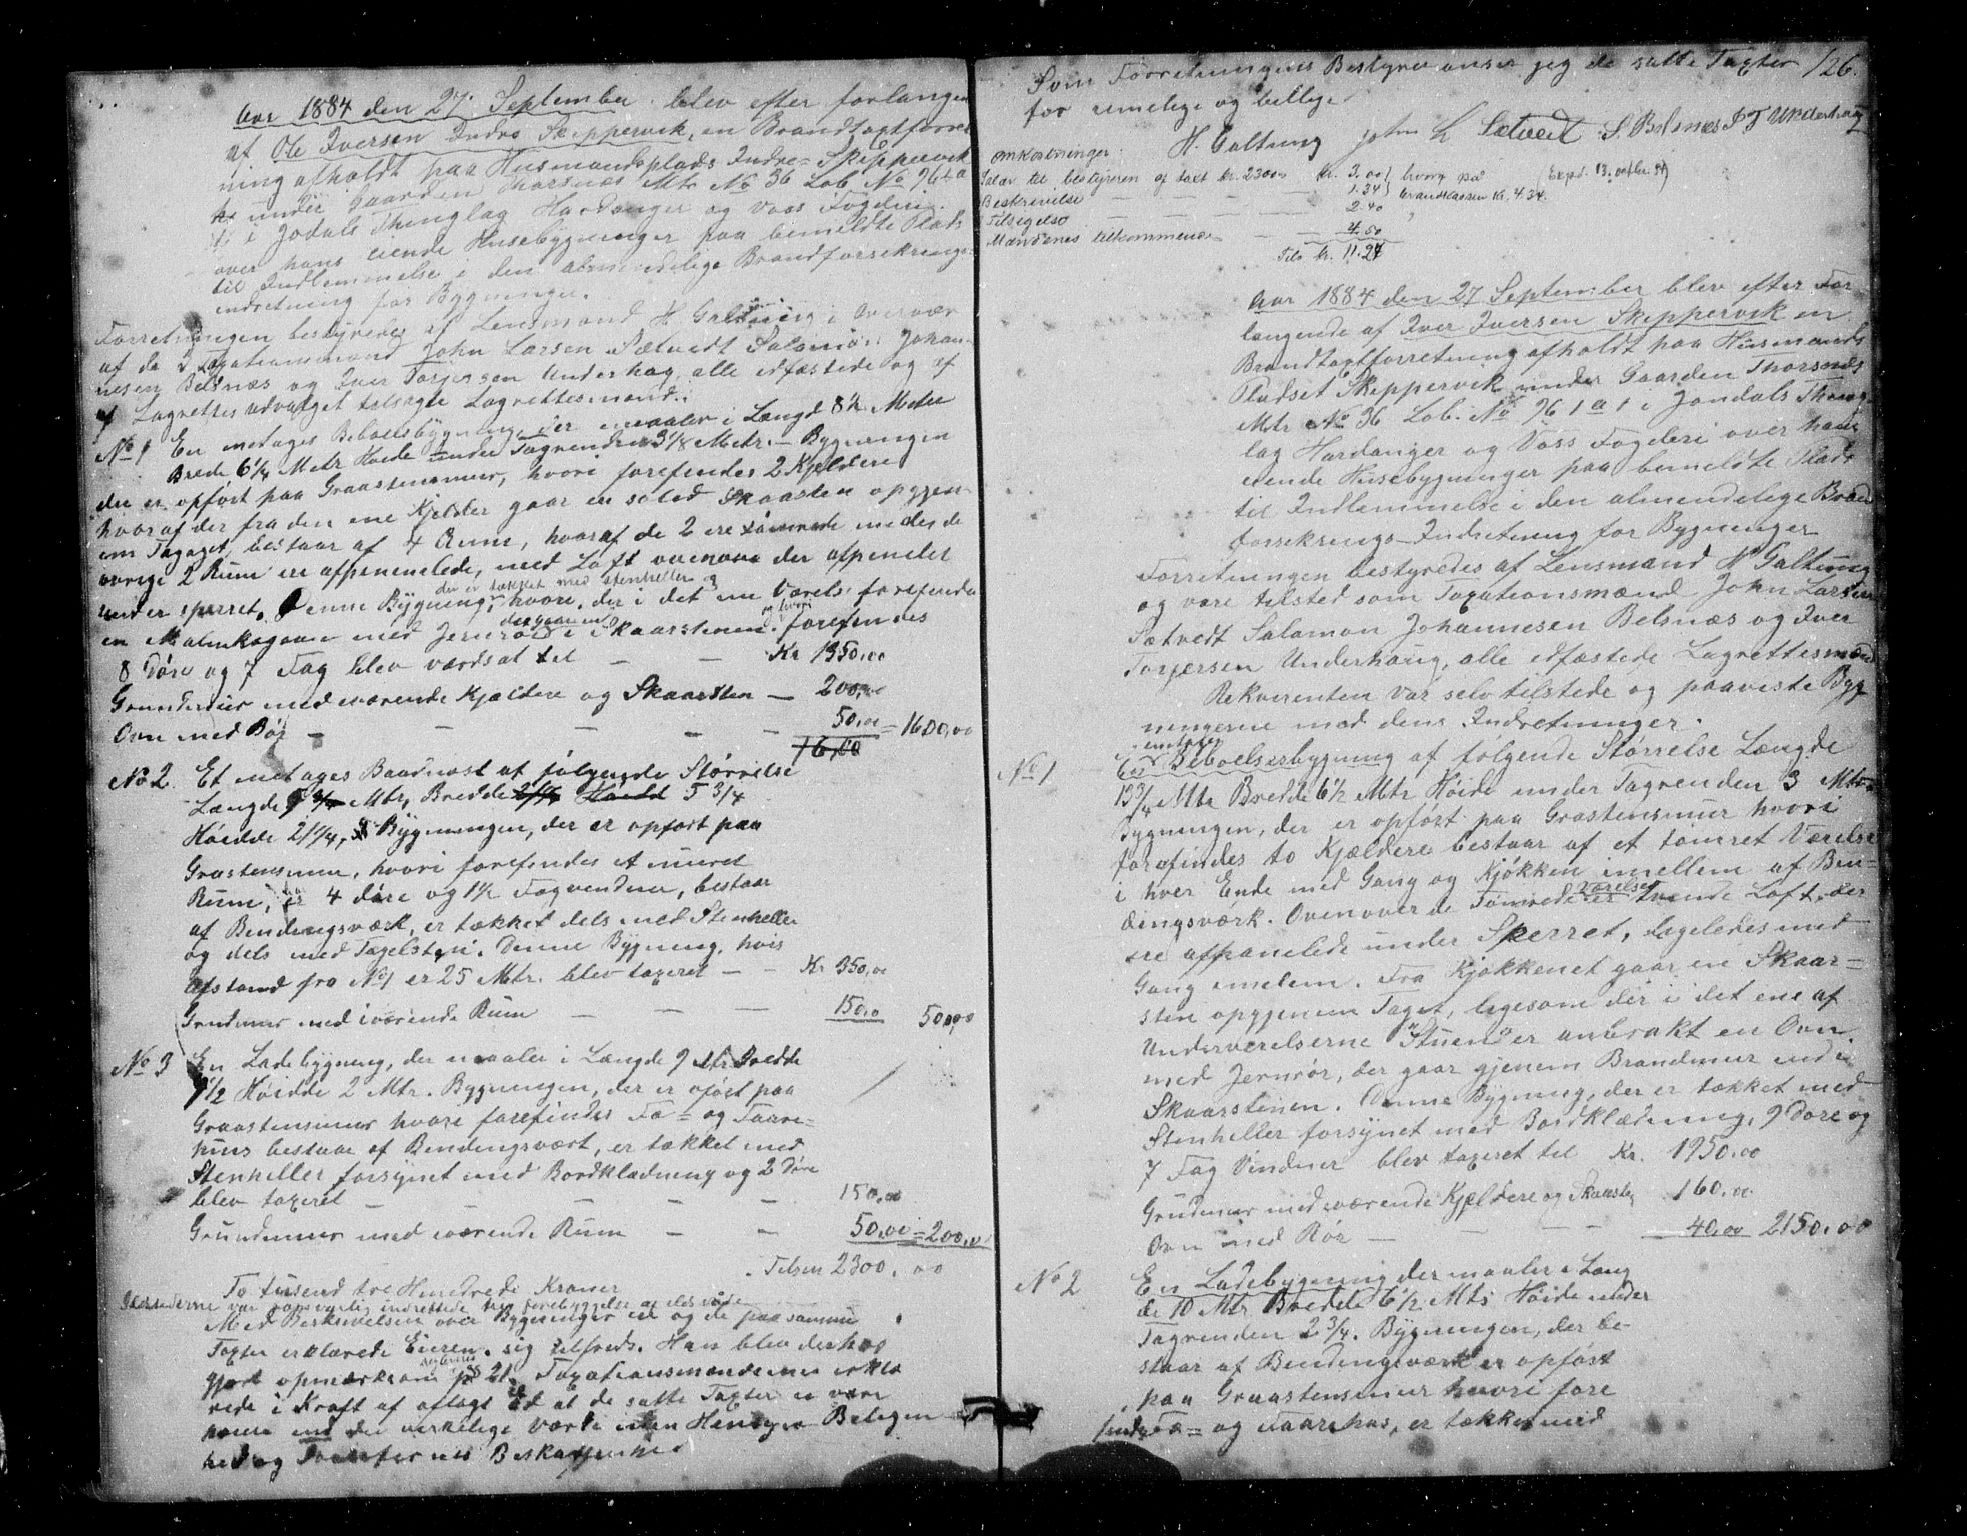 Aar 1884 den 27 September blev efter forlangen
af Ole Iversen Indre Skippervik, en Brandtaxtforret
ning afholdt paa Husmandsplads Indre-Skippervik
under Gaarden Thorsnæs Mtr No 36 Lob. No 96 1 a
i Jodals Thinglag Hardanger og Voss Fogderi
over hans eiende Husebygninger paa bemeldte Plads
til Indlemmelse i den almindelige Brandforsekrings-
indretning for Bygninger.
Forretningen bestyredes af Lensmand H Galtung i Overvær
af de 3 Taxationsmænd John Larsen Sætvedt Salamon Johan-
nesen Belsnæs og Iver Torjersen Underhag, alle edfæstede og af
Lagrettesudvalget tilsagte Lagrettesmænd:
No 1 En enetages Beboelsbygning, der maaler i Længd 8 1/2 Meter
Brede 6 1/4 Metr Høide under Tagrenden 3 1/8 Metr. – Bygningen
der er opført paa Graastensmur, hvori forefindes 2 Kjeldere
hvoraf der fra den ene Kjelder gaar en solid Skaasten opgjen-
em Taget, bestaar af 4 Rum, hvoraf de 2 ere tømrede medens de
øvrige 2 Rum ere afpenemlede, med Loft ovenover der afpenelet
under sperret. Denne Bygning, hvore, der i det ene Værels forefindes
der er takket med stenheller og
en Malmkogaavn med Jernrør i Skaarstenen forefindes
der gaar ind og hvori
8 Døre og 7 Fag blev værdsat til — — Kr 1350,00
Grundmur med værende Kjældere og Skaarsten — 200,00
Ovn med Rør — — — — 50,00 = 1600,00
No 2. Et enetages Baadnøst af følgende Størrelse
Længde 9 3/4 Mtr, Bredde 5 3/4
Høidde 2 1/4, Bygningen, der er opført paa
Grastensmur, hvori forefindes et muret
Rum, har 4 døre og 1 1/2 Fagvenduer, bestaar
af Bendingsværk, er tækket dels med Stenheller
og dels med Tagelsten. Denne Bygning, hvis
Afstand fra No 1 er 25 Mtr. blev taxeret — — Kr 350,00
Grundmur med iværende Rum — — — 150,0 500,00
No 3 En Ladebygning, der maaler i Længde 9 Mtr Bredde
7 1/2 Høidde 2 Mtr. Bygningen, der er oført paa
Graastensmur hvore forefindes Fæ- og Faare-
huus bestaar af Bendingsvært, er tækket med
Stenheller forsynet med Bordklædning og 2 Døre
blev taxeret — — — — 150,00
Grundmur med værende Rum — — 50,00 = 200,00
Tilsen 2300,00
To tusend tre Hundrede Kroner
Ildstederne var forsvarlig indrettede til forebyggelse af Ildsvåde
Med Beskrivelsen over Bygninger ne og de paa samme
Taxter erklærede Eieren sig tilfreds. Han blev derhos
gjort opmærksom på § 21. Taxationsmændene erklæ
rede i Kraft af aflagt Ed at de satte Taxter er være
den verkelige Værdi uden Hensyn Beligen
hed og Beskaffenhed
Som Forretningens Bestyrer anser jeg de satte Taxter 126.
for rimelige og billige
H. Galtung John L Sætvedt S. Belsnæs I T Underhaug
Omkostninger:
Salær til bestyreren af taxt kr. 2300 kr. 3.00 } hvorp paa (Exped. 13. 84)
Beskrivelse — — — 1.34 } brandkassen kr. 4.34.
Tilsigelse — — — 2.40
Mændenes tilkommende — — 4.50
Tils kr. 11.24
Aar 1884 den 27 September blev efter For
langende af Iver Iversen Skippervik en
Brandtaxtforretning afholdt paa Husmands
Pladset Skippervik under Gaarden Thorsnæs
Mtr No 36 Lob. No 96 1 a 1 i Jondals Thing
lag Hardanger og Voss Fogderi over hans
eiende Husebygninger paa bemeldte Plads
til Indlemmelse i den almendelige Brand
forsekrings-Indretning for Bygninger
Forretningen bestyredes af Lensmand H Galtung
og vare tilsted som Taxationsmænd John Larsen
Sætvedt Salamon Johannesen Belsnæs og Iver
Torjersen Underhaug, alle edfæstede Lagrettesmænd
Rekverenten var selv tilstede og paaviste Byg
ningerne med dens Indretninger.
No 1 En Beboelsesbygning af følgende Størrelse Længde
enetages
13 3/4 Mtr Bredde 6 1/2 Mtr Høide under Tagrenden 3 Mtr
Bygningen, der er opført paa Grastensmur hvori
forefindes to Kjældere bestaar af et tømret Værelse
i hver Ende med Gang og Kjøkken imellem af Ben-
dingsværk. Ovenover de Tømrede er tvende Loft, der
Værelser
ere afpanelede under Sperret, Ligeledes med
Gang imelem. Fra Kjøkkenet gaar en Skaar-
sten opgjenem Taget, ligesom der i det ene af
Underværelserne "Stuen" er anbrakt en Ovn
med Jernrør, der gaar gjenem Brandmur ind i
Skaarstenen. Denne Bygning, der er tækket med
Stenheller forsynet med Bordklædning, 9 Døre og
7 Fag Vinduer blev taxeret til Kr. 1950.00
Grudmur med værende Kjeldere og Skaarste. 160.00
Ovn med Rør — — — — 40,00 2150,00
No 2 En Ladebygning der maaler i Læng
de 10 Mtr Bredde 6 1/2 Mtr Høide under
Tagrenden 2 3/4. Bygningen, der be-
staar af Bendingsværk er opført
paa Graastensmur hvori fore
findes Fæ- og Faarehus, er tækket med